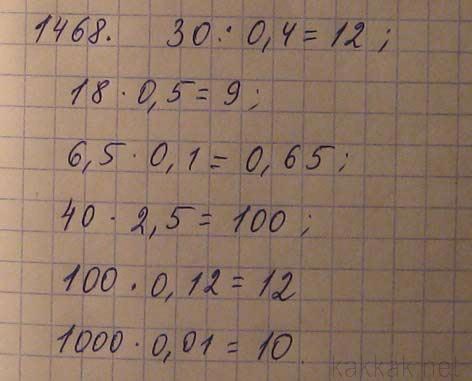 1468. 30 · 0,4 = 12 ;
18 · 0,5 = 9 ;
6,5 · 0,1 = 0,65 ;
40 · 2,5 = 100 ;
100 · 0,12 = 12
1000 · 0,01 = 10
kakkak.net